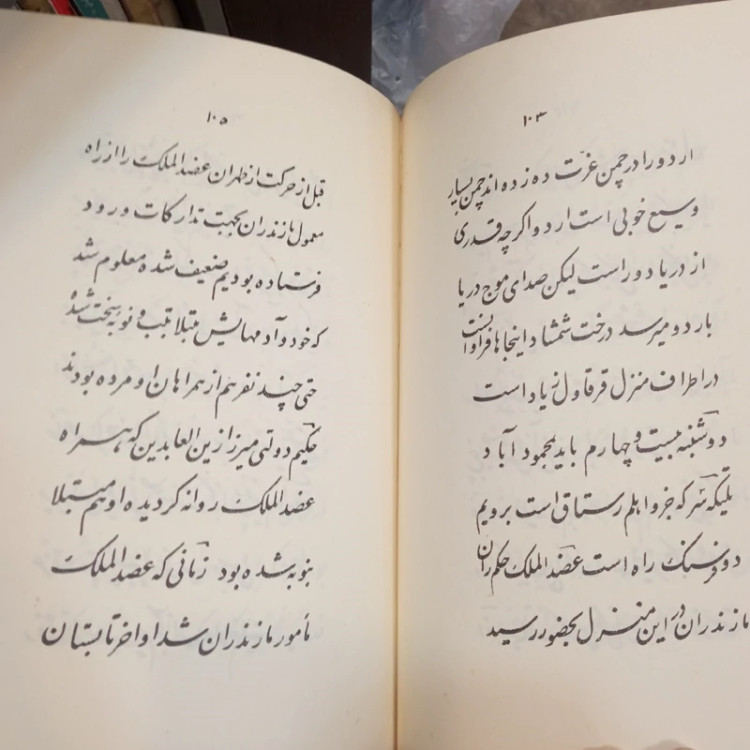 ۱۰۳
اردو را در چمن عزّت ده زده اند چمن بسیار
وسیع خوبی است اردو اگرچه قدری
از دریا دور است لیکن صدای موج دریا
باردو میرسد درخت شمشاد اینجاها فراوانست
در اطراف منزل قرقاول زیاد است
دوشنبه بیست و چهارم باید بمحمودآباد
که جزو اهلم رستاق است برویم
دو فرسنک راه است عضد الملک حکمران
مازندران در این منزل بحضور رسید
۱۰۵
قبل از حرکت از طهران عضد الملک را از راه
معمول مازندران بجهت تدارکات ورود
فرستاده بودیم ضعیف شده معلوم شد
که خود و آدمهایش مبتلا بتب و نوبه سخت شده
حتی چند نفر هم از همراهان او مرده بودند
حکیم دولتی میرزا زین العابدین که همراه
عضد الملک روانه کردیده او هم مبتلا
بنوبه شده بود زمانی که عضد الملک
مأمور مازندران شد اواخر تابستان